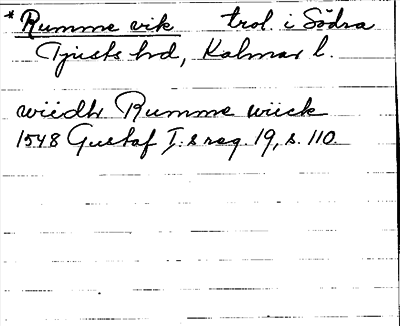 *Rumme vik trol. i Södra
Tjusts hd, Kalmar l.
wiidh Rumme wiick
1548 Gustaf I:s reg. 19, s. 110.